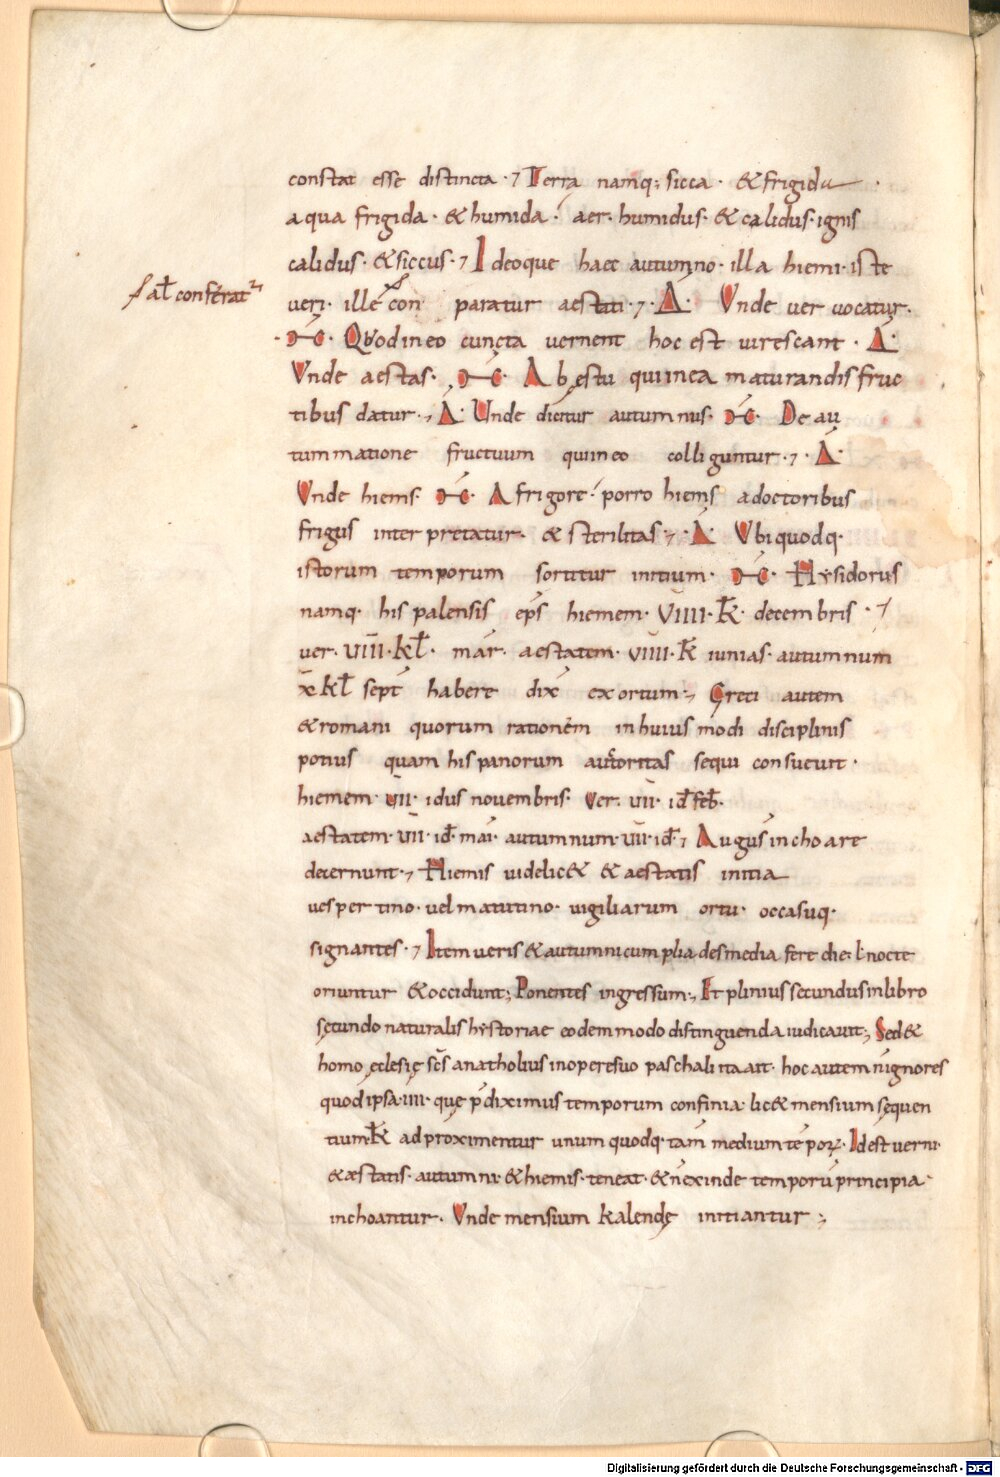 constat esse distincta · Terra namq; sicca · & frigida ·
aqua frigida · & humida · aer · humidus · & calidus · ignis
calidus · & siccus · Ideoque haec autumno · illa hiemi · iste
al conferat
veri · ille con paratur aestati · Δ · Unde ver vocatur ·
Quod in eo cuncta vernent hoc est virescant · Δ ·
Unde aestas · Ab estu qui in ea maturandis fruc
tibus datur · Δ · Unde dicitur autumnus · De au
tummatione fructuum qui in eo colliguntur · Δ ·
Unde hiems · A frigore · porro hiems a doctoribus
frigus inter pretatur · & sterilitas · Δ · Ubi quodq·
istorum temporum sortitur initium · Hysidorus
namq· his palensis eps hiemem · VIIII · K decembris ·
ver · VIII · kl · mar · aestatem · VIIII · K iunias · autumnum
x kl sept habere dix exortum · Greci autem
& romani quorum rationem in huius modi disciplinis
potius quam hispanorum auctoritas sequi consuevit ·
hiemem · VII · idus novembris · Ver · VII · id feb ·
aestatem · VII · id mai · autumnum · VII · id · Augus inchoare
decernunt · Hiemis videlic& & aestatis initia
vespertino · vel matutino · vigiliarum ortu · occasuq·
signantes · Item veris & autumni cum pliades media fere die · l nocte
oriuntur & occidunt; Ponentes ingressum · Et plinius secundus in libro
secundo naturalis hystoriae eodem modo distinguenda iudicavit; Sed &
homo ęclesię scs anatholius in opere suo paschali ita ait · hoc autem n ignores
quod ipsa · IIII · que pdiximus temporum confinia · lic& mensium sequen
tium K adproximentur unum quodq· tam medium tepor · Id est verni ·
& æstatis · autumni · & hiemis · teneat · & n exinde temporu principia ·
inchoantur · Unde mensium kalendę initiantur ;
Digitalisierung gefördert durch die Deutsche Forschungsgemeinschaft - DFG